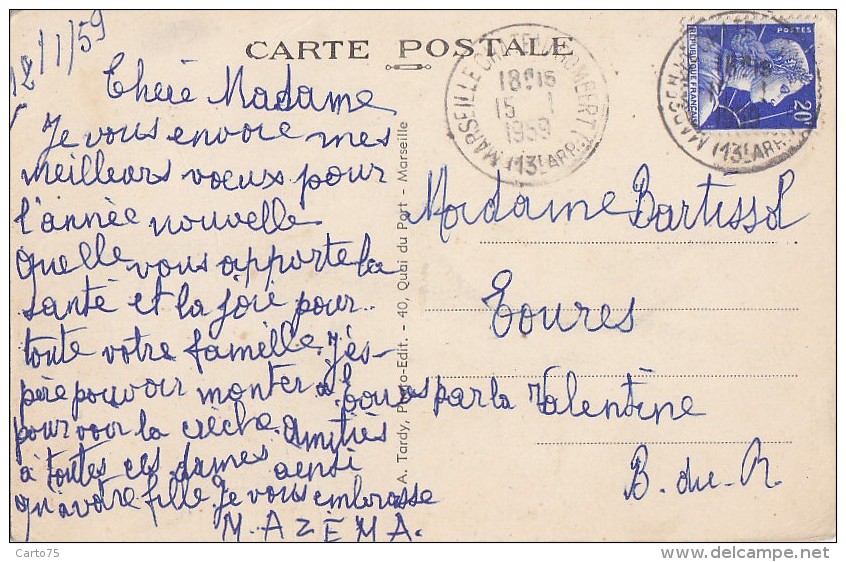 12/1/59
CARTE POSTALE
Chère Madame
Je vous envoie mes
meilleurs voeux pour
l'année nouvelle
Quelle vous apporte la
santé et la joie pour
toute votre famille. J'és-
père pouvoir monter à Eoures
pour voir la crèche. Amitiés
à toutes ces dames ainsi
qu'a votre fille Je vous embrasse
M. AZÉMA.
A. Tardy, Photo-Edit. - 40, Quai du Port - Marseille
MARSEILLE
18H16
15 1
1959
(13E ARRt)
POSTES
REPUBLIQUE FRANÇAISE
20F
Madame Bartissol
Eoures
par la Valentine
B. du. R.
Carto75
www.delcampe.net